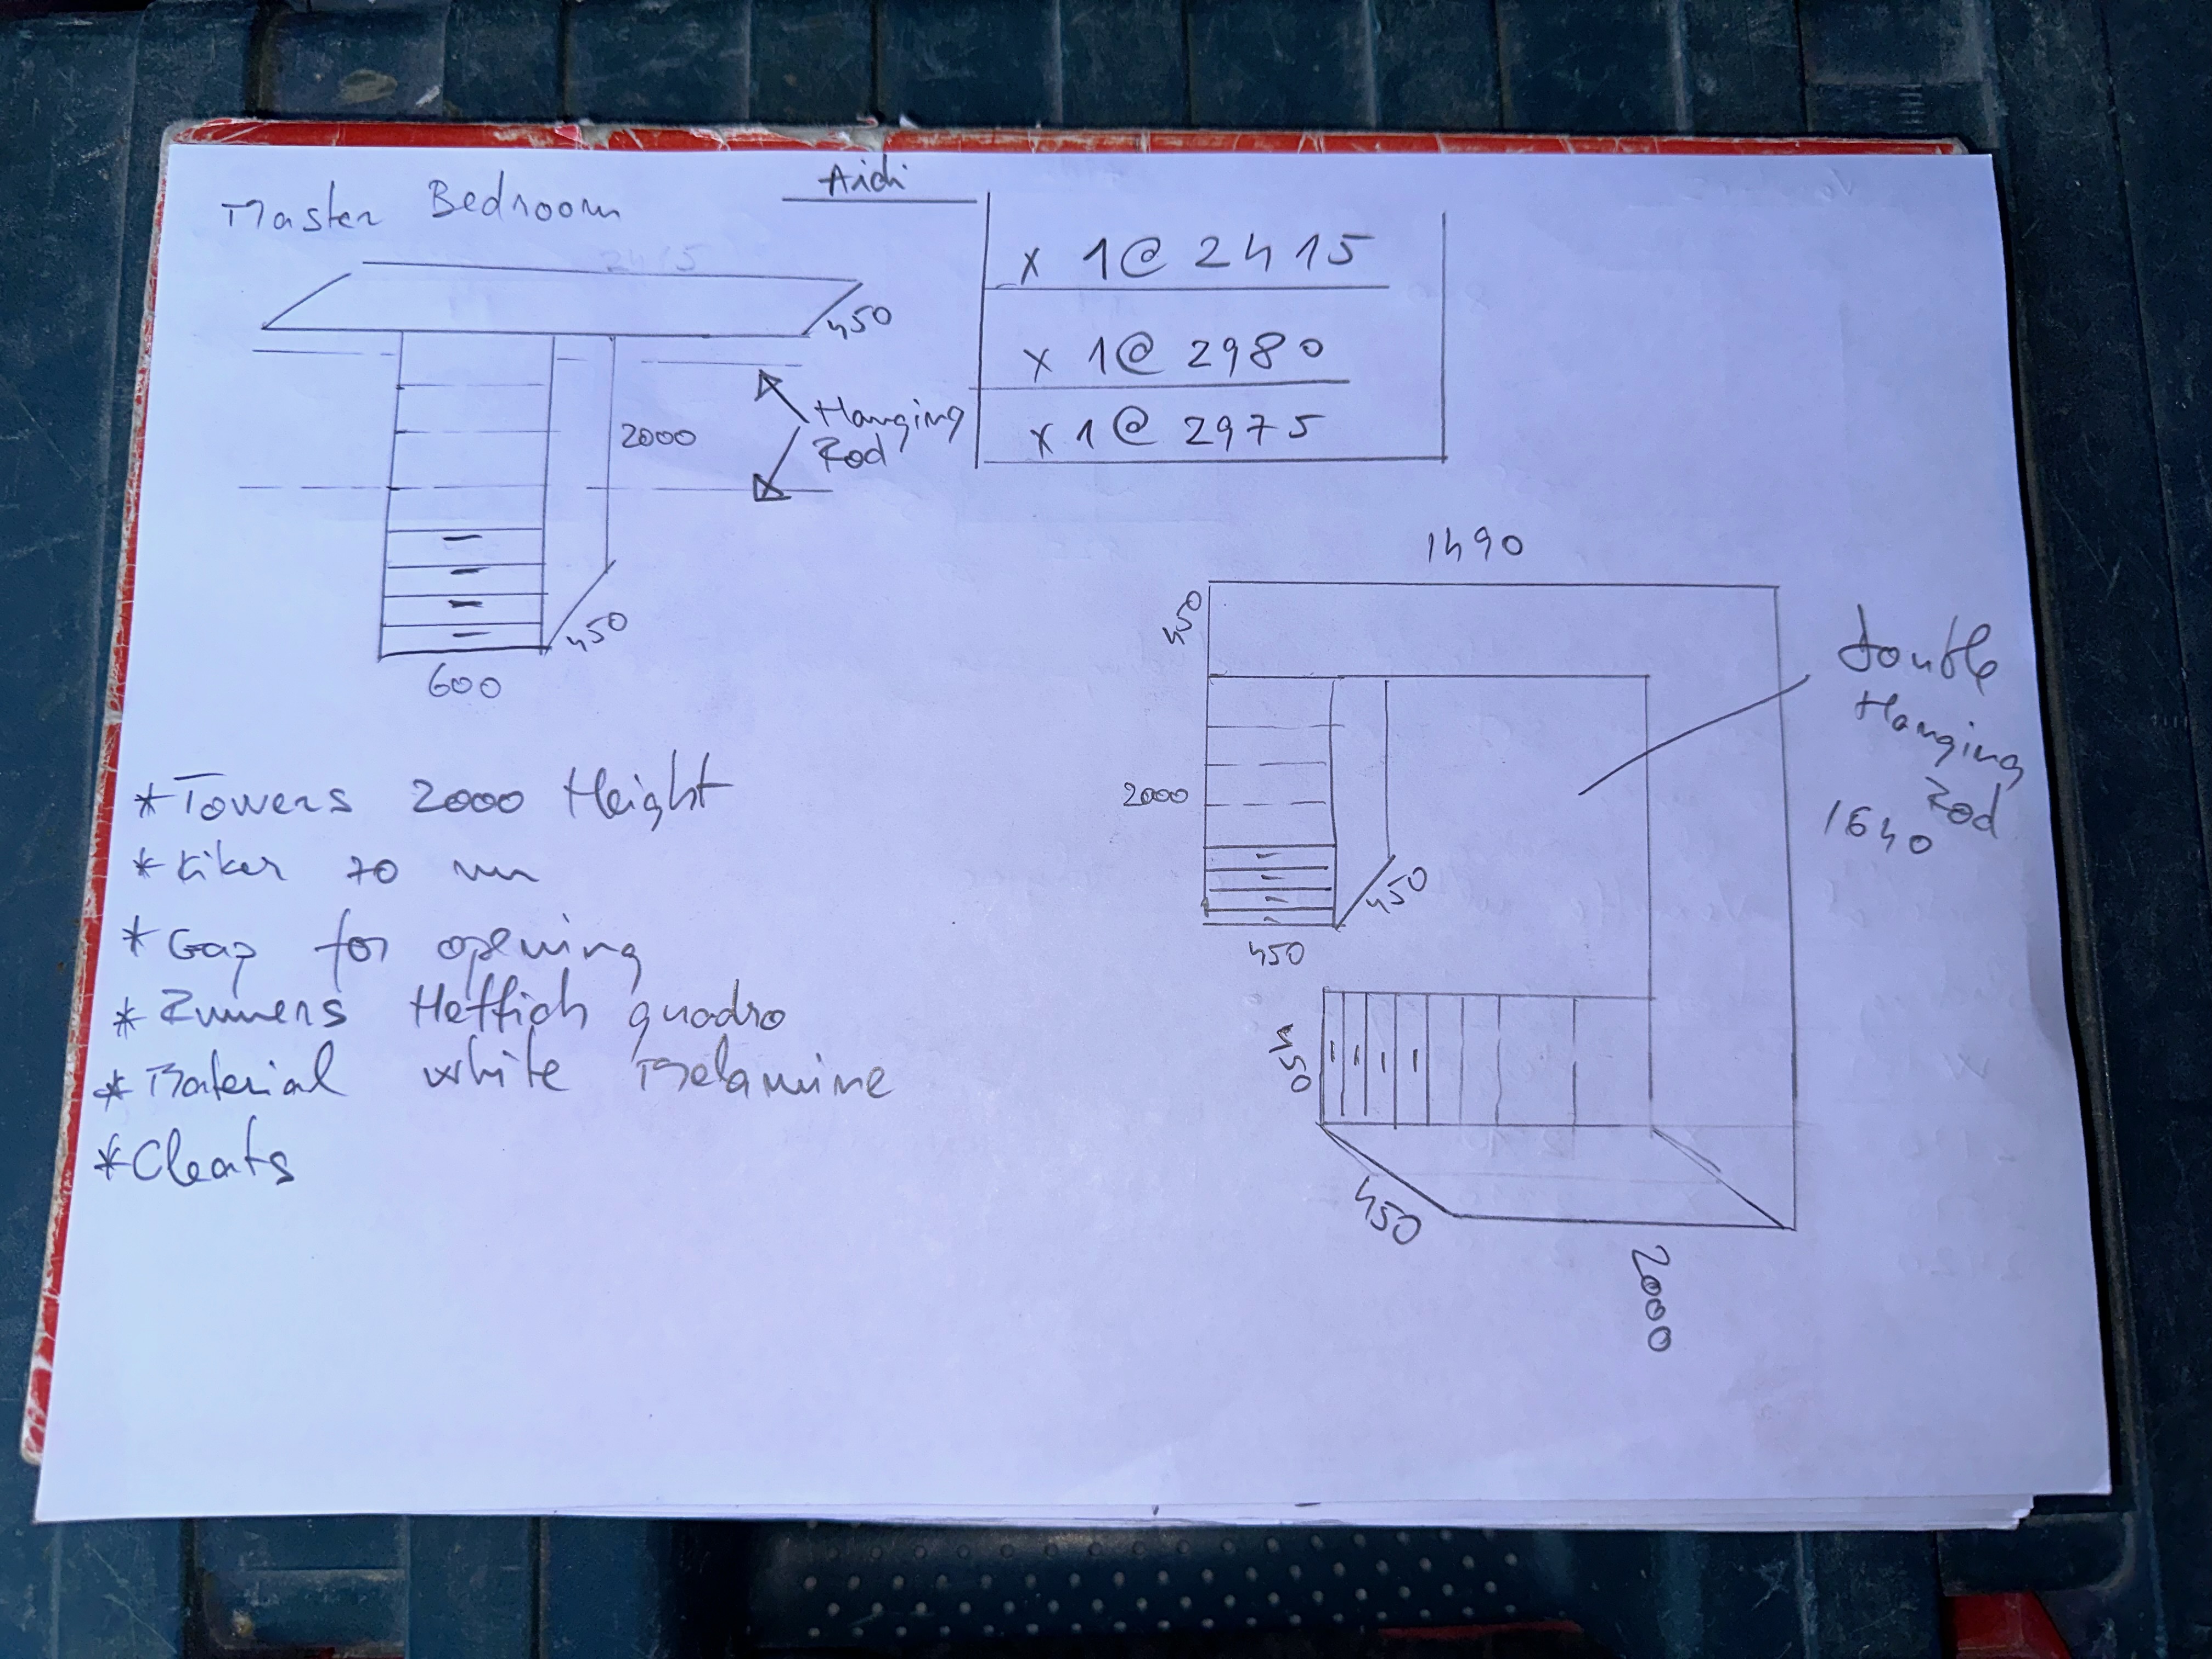 Master Bedroom
Aidi
2415
x 1@ 2415
x 1@ 2980
x 1@ 2975
450
Hanging
Rod
2000
450
600
1490
450
Double
Hanging
Rod
1640
2000
450
450
450
450
2000
*Towers 2000 Height
*Kiker 70 mm
*Gap for opening
*Runners Hettich quadro
*Material white Melamine
*Cleats